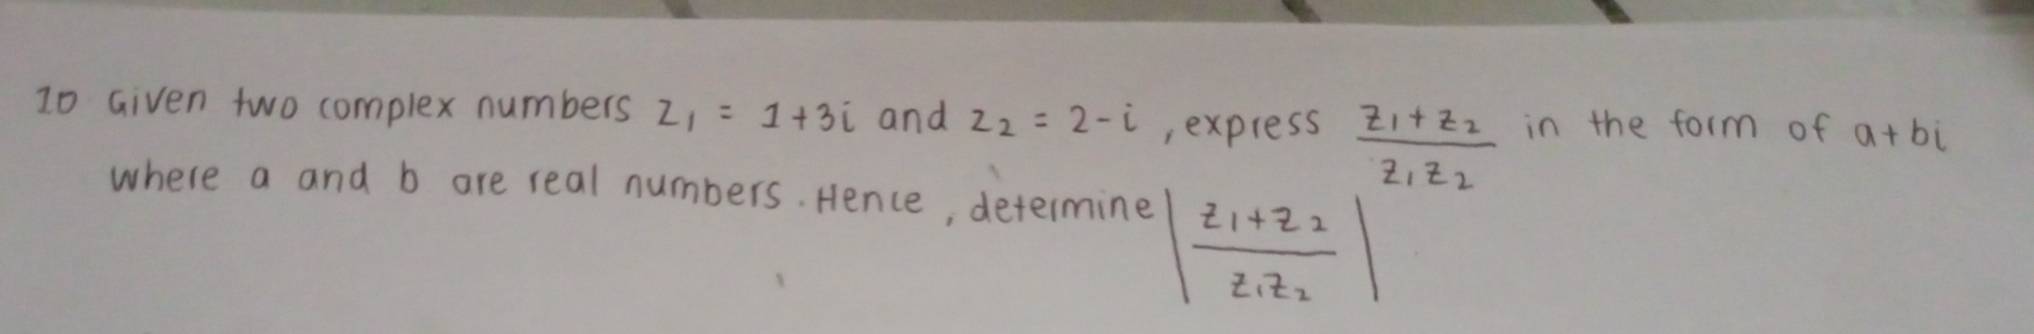 10 Given two complex numbers z₁ = 1+3i and z₂ = 2-i, express \frac{z₁+z₂}{z₁z₂} in the form of a+bi
where a and b are real numbers. Hence, determine |\frac{z₁+z₂}{z₁z₂}|